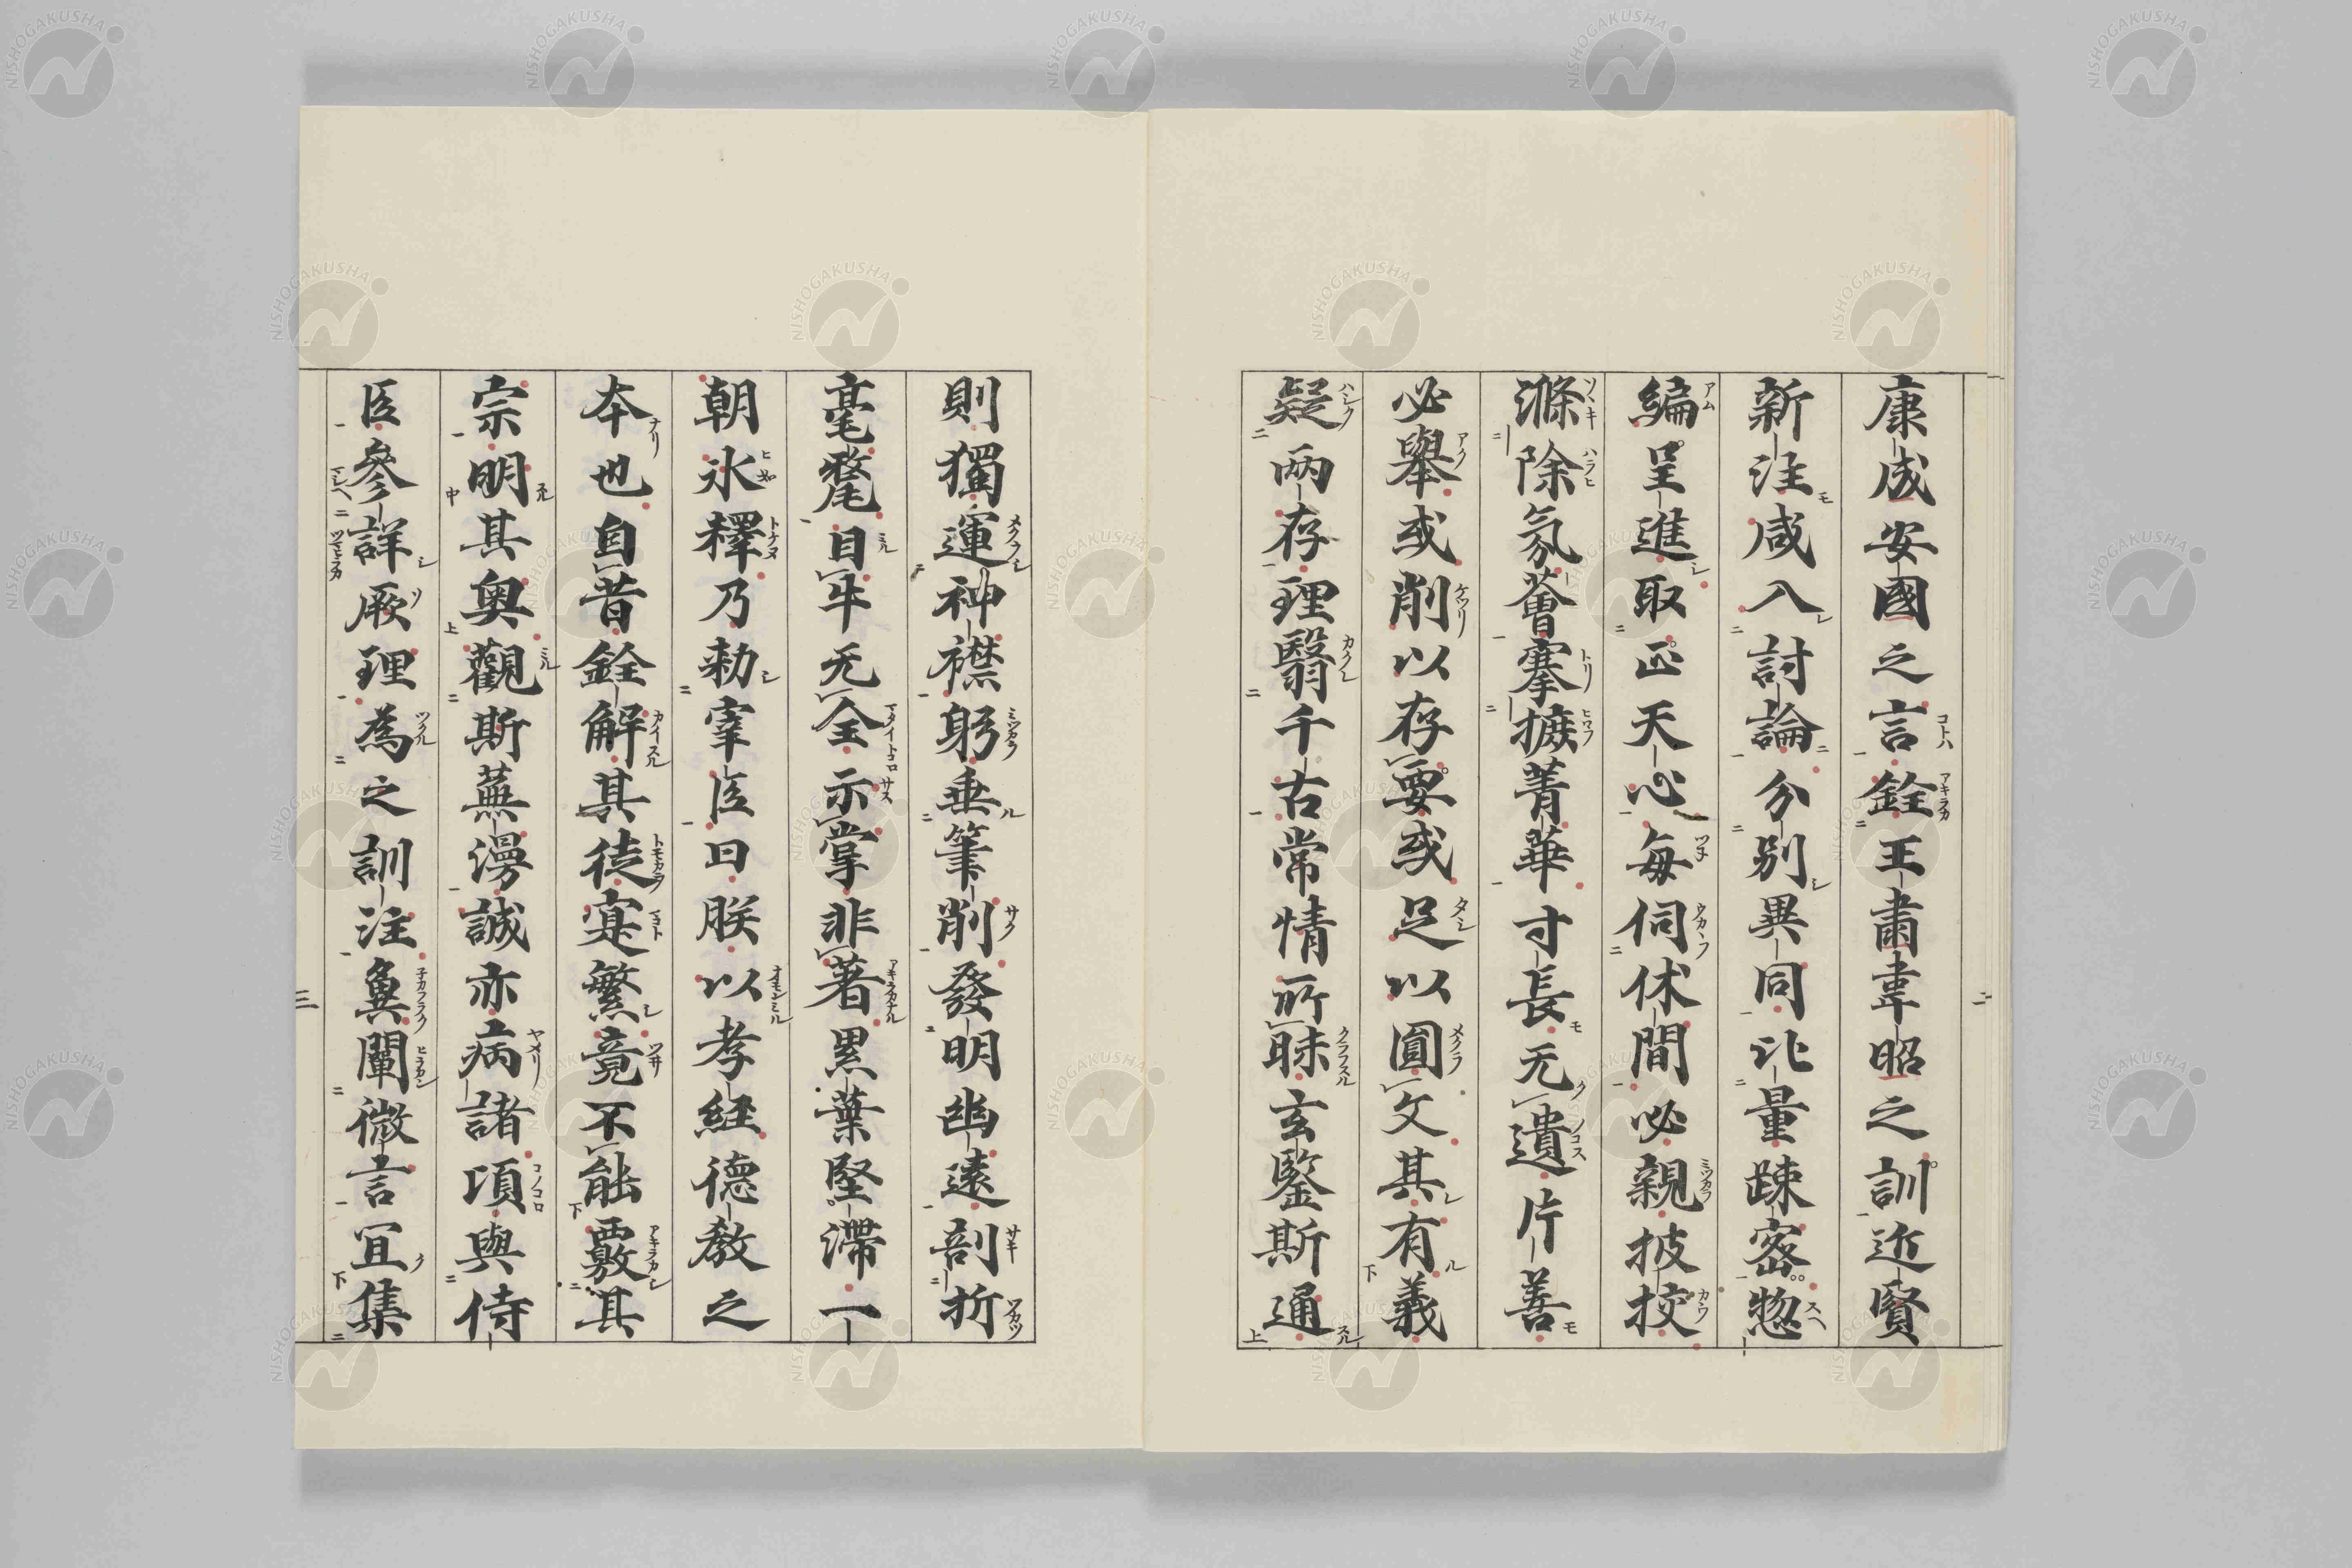 康成安國之言銓王肅韋昭之訓近賢
新注咸入討論分別異同比量踈密惣
編呈進取正天心每伺休間必親披挍
滌除氛薈搴摭菁華寸長无遺片善
必舉或削以存要或足以圓文其有義
疑兩存理翳千古常情所昧玄鑒斯通
則獨運神襟躬垂筆削發明幽遠剖折
毫氂目牛无全示掌非著累葉堅滯一
朝氷釋乃勑宰臣曰朕以孝經德教之
本也自昔銓解其徒寔繁竟不能覈其
宗明其奥觀斯蕪漫誠亦病諸頃與侍
臣參詳厥理為之訓注兾闡微言冝集
NISHOGAKUSHA